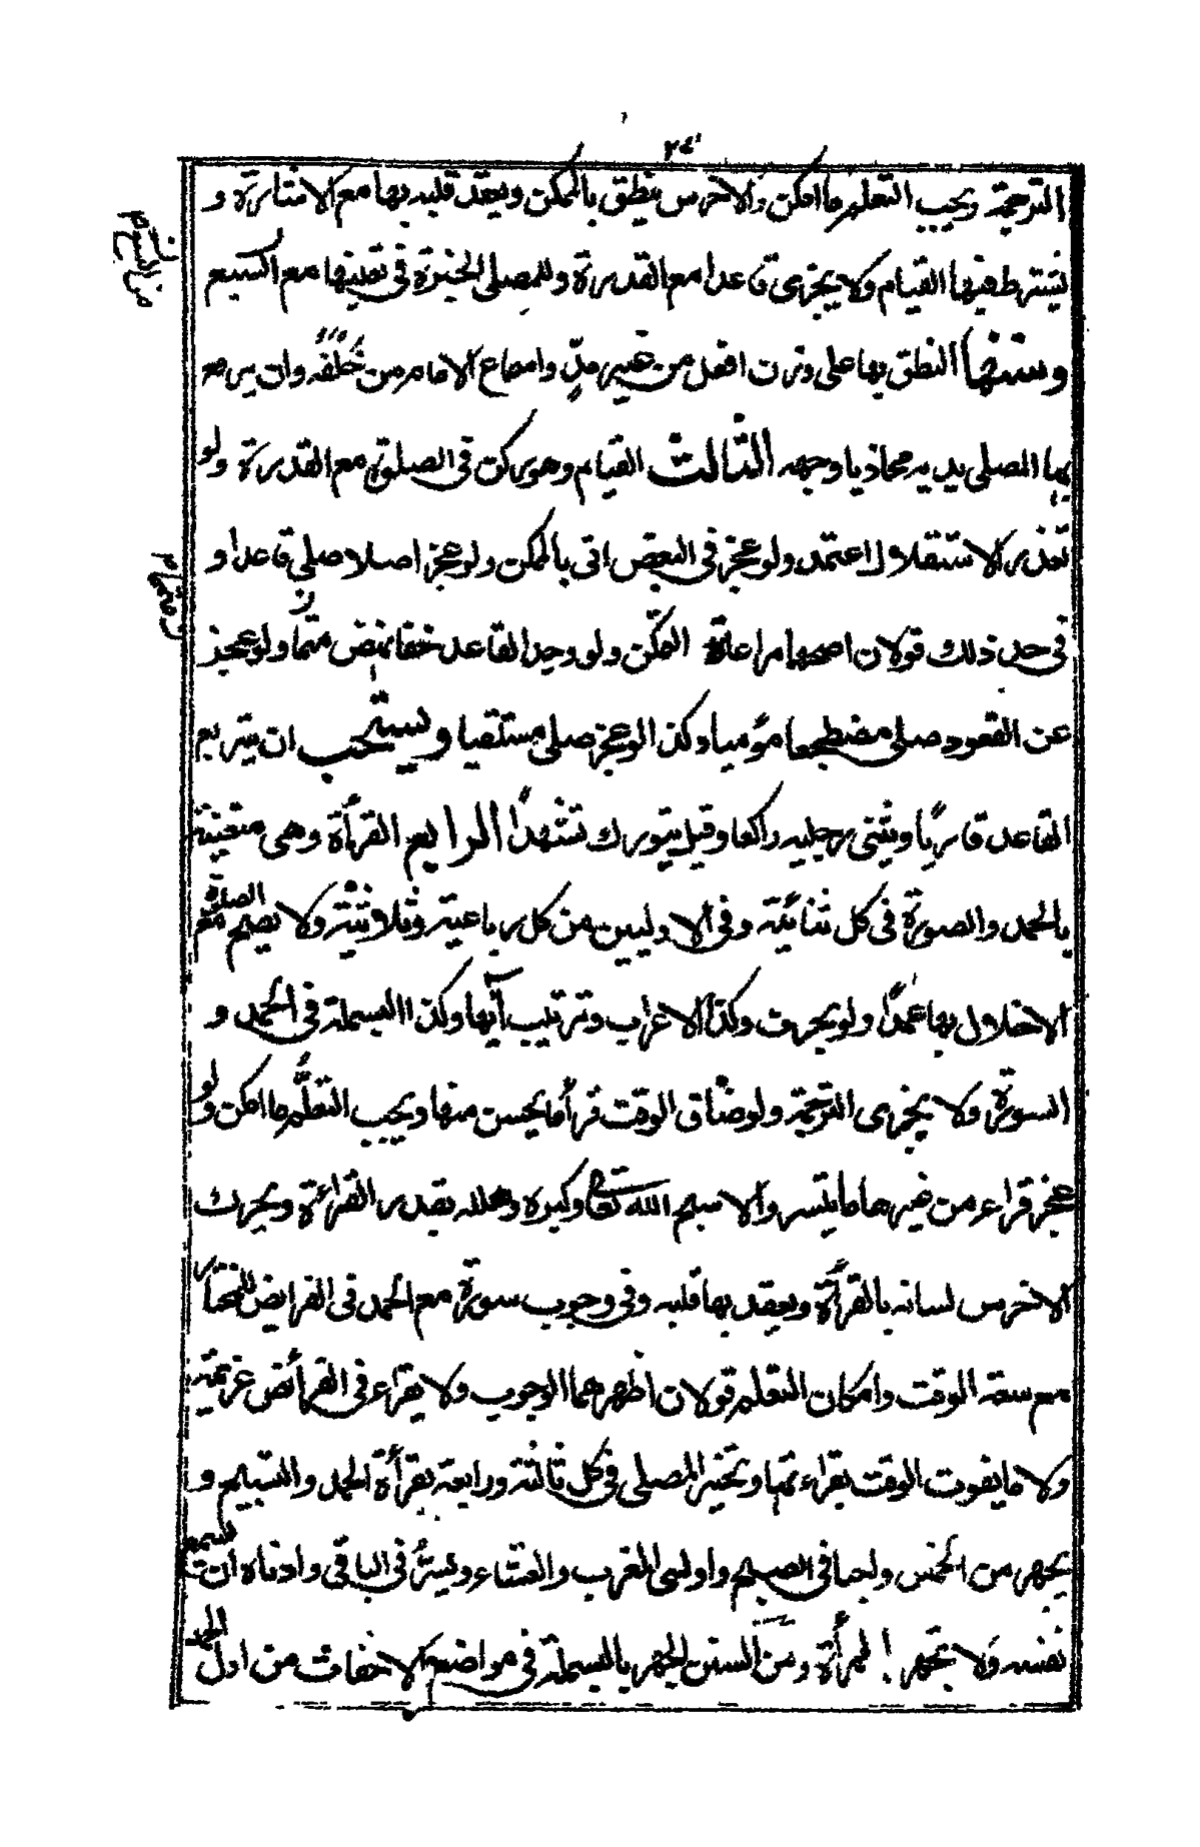 ٢٤
الترجمة ويجب التعلم ما امكن والاخرس ينطق بالممكن ويعقد قلبه بها مع الاشارة و
يشترط فيها القيام ولا يجزى قاعدا مع القدرة وللمصلى الخيرة فى تعيينها مع السبع
وسننها النطق بها على وزن افعل من غير مدّ واسماع الامام من خلفه وان يرفع
بها المصلى يديه محاذيا وجهه الثالث القيام وهو ركن فى الصلوة مع القدرة ولو
تعذر الاستقلال اعتمد ولو عجز فى البعض اتى بالممكن ولو عجز اصلا صلى قاعدا و
فى حد ذلك قولان اصحهما مراعاة التمكن ولو وجد القاعد خفا نهض متما ولو عجز
عن القعود صلى مضطجعا مؤميا وكذا لو عجز صلى مستلقيا ويستحب ان يتربع
القاعد قاريًا ويثنى رجليه راكعا وقيل يتورك تشهدًا الرابع القرأة وهى متعينة
بالحمد والسورة فى كل ثنائية وفى الاوليين من كل رباعية وثلاثية ولا يصح الصلوة مع
الاخلال بها عمدًا ولو بحرف وكذا الاعراب وترتيب آيها وكذا البسملة فى الحمد و
السورة ولا يجزى الترجمة ولو ضاق الوقت قرأ ما يحسن منها ويجب التعلّم ما امكن ولو
عجز قراء من غيرها ما تيسر والا سبح الله تعالى وكبره وهلله بقدر القراءة ويحرك
الاخرس لسانه بالقرأة ويعقد بها قلبه وفى وجوب سورة مع الحمد فى الفرايض للمختار
مع سعة الوقت وامكان التعلم قولان اظهرهما الوجوب ولا يقراء فى الفرائض عزيمة
ولا ما يفوت الوقت بقراءتها ويتخير المصلى فى كل ثالثة ورابعة بقرأة الحمد والتسبيح و
يجهر من الخمس واجبا فى الصبح واولى المغرب والعشاء ويسرّ فى الباقى وادناه ان تسمع
نفسه ولا تجهر المرأة ومن السنن الجهر بالبسملة فى مواضع الاخفات من اول الحمد